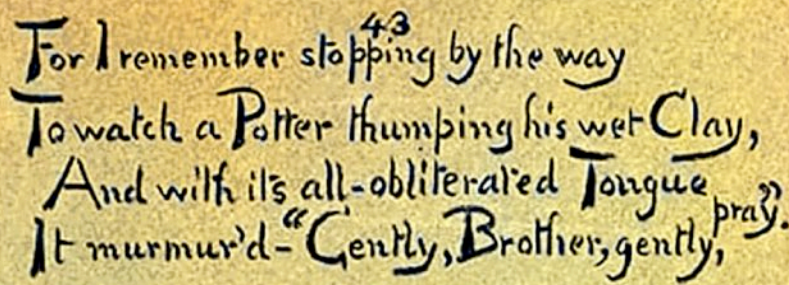 43
For I remember stopping by the way
To watch a Potter thumping his wet Clay,
And with its all-obliterated Tongue
It murmur'd-"Gently, Brother, gently, pray".